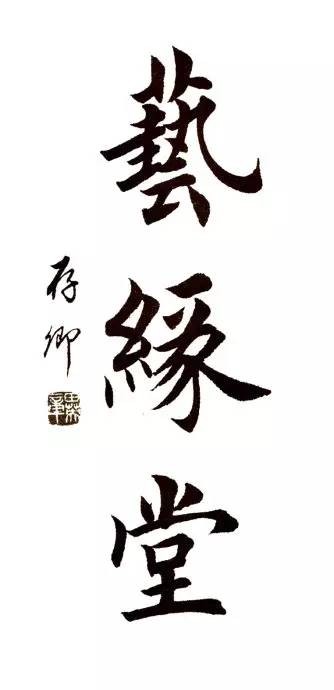 藝緣堂
存卿